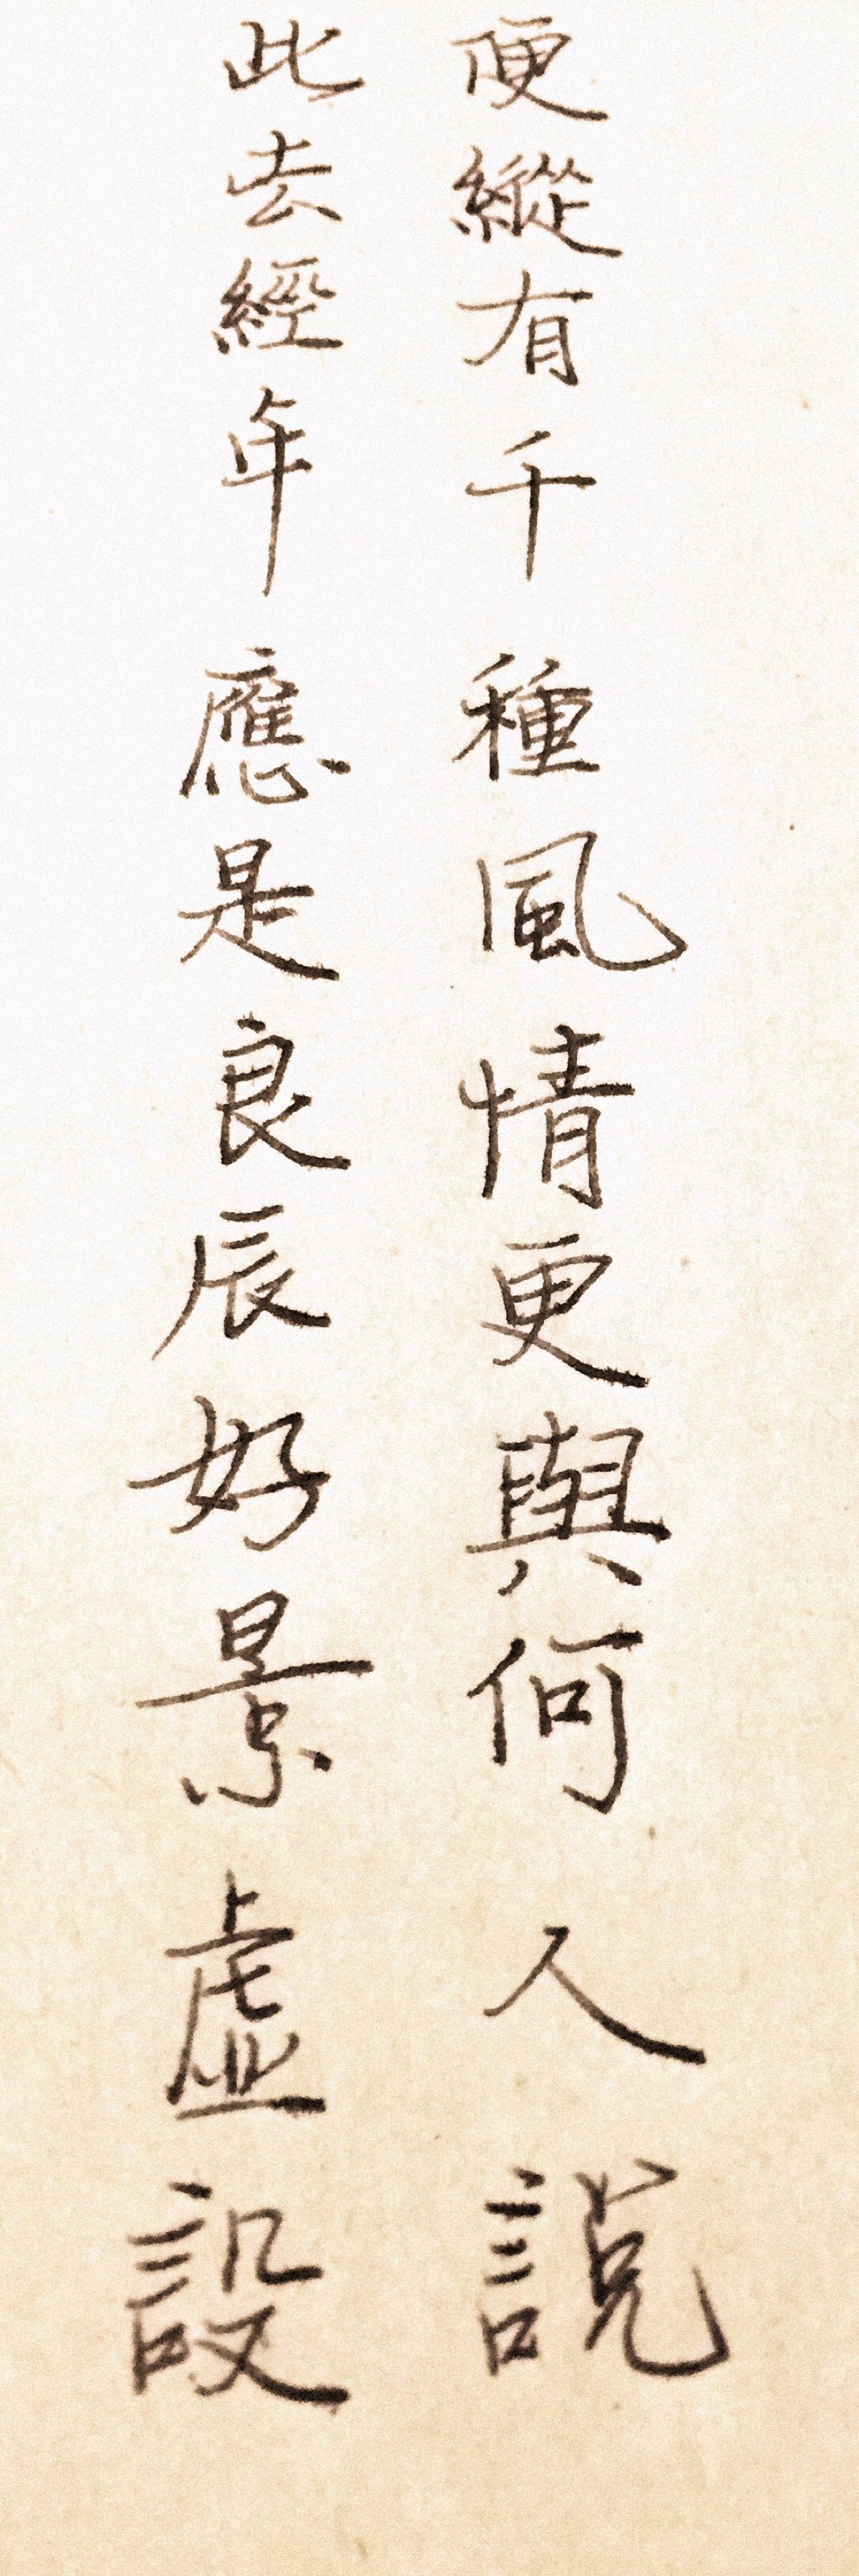 便縱有千種風情更與何人説
此去經年應是良辰好景虛設